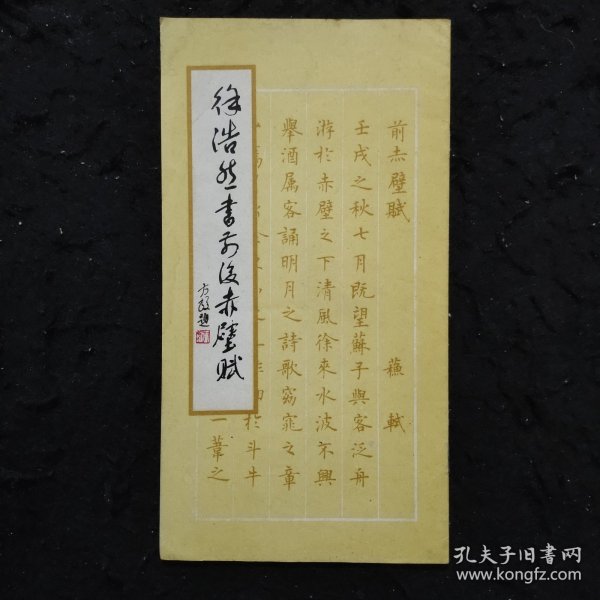 徐浩然書前後赤壁賦
方毅題
前赤壁賦 蘇軾
壬戌之秋七月既望蘇子與客泛舟
游於赤壁之下清風徐來水波不興
舉酒属客誦明月之詩歌窈窕之章
於斗牛
一葦之
孔夫子旧書网
www.kongfz.com